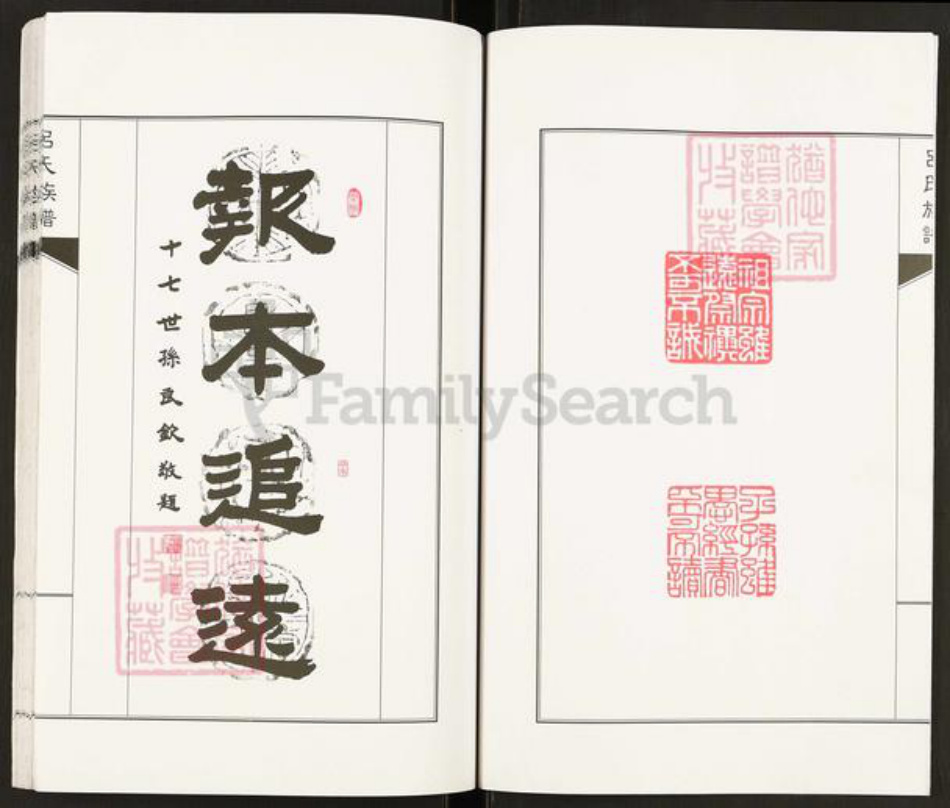 呂氏族譜
猶他家
譜學會
收藏
祖宗雖
遠祭禩
不可不誠
子孫雖
愚經書
不可不讀
報本追遠
十七世孫良欽敬題
猶他家
譜學會
收藏
呂氏族譜
FamilySearch